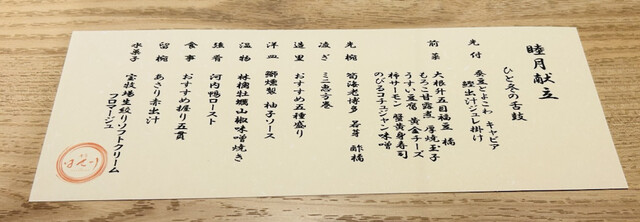 睦月献立
ひと冬の舌鼓
先付 蚕豆とよこわ キャビア
鰹出汁ジュレ掛け
前菜 大根升五目福豆 橘
もろこ甘露煮 厚焼玉子
うすい豆腐 黄金チーズ
柿サーモン 蟹黄身寿司
のびるコチュジャン味噌
先椀 蛤海老博多 若芽 酢橘
凌ぎ ミニ恵方巻
造里 おすすめ五種盛り
洋皿 鰤燻製 柚子ソース
温物 林檎牡蠣山椒味噌焼き
強肴 河内鴨ロースト
食事 おすすめ握り五貫
留椀 あさり赤出汁
水菓子 宝牧場生絞りソフトクリーム
フロマージュ